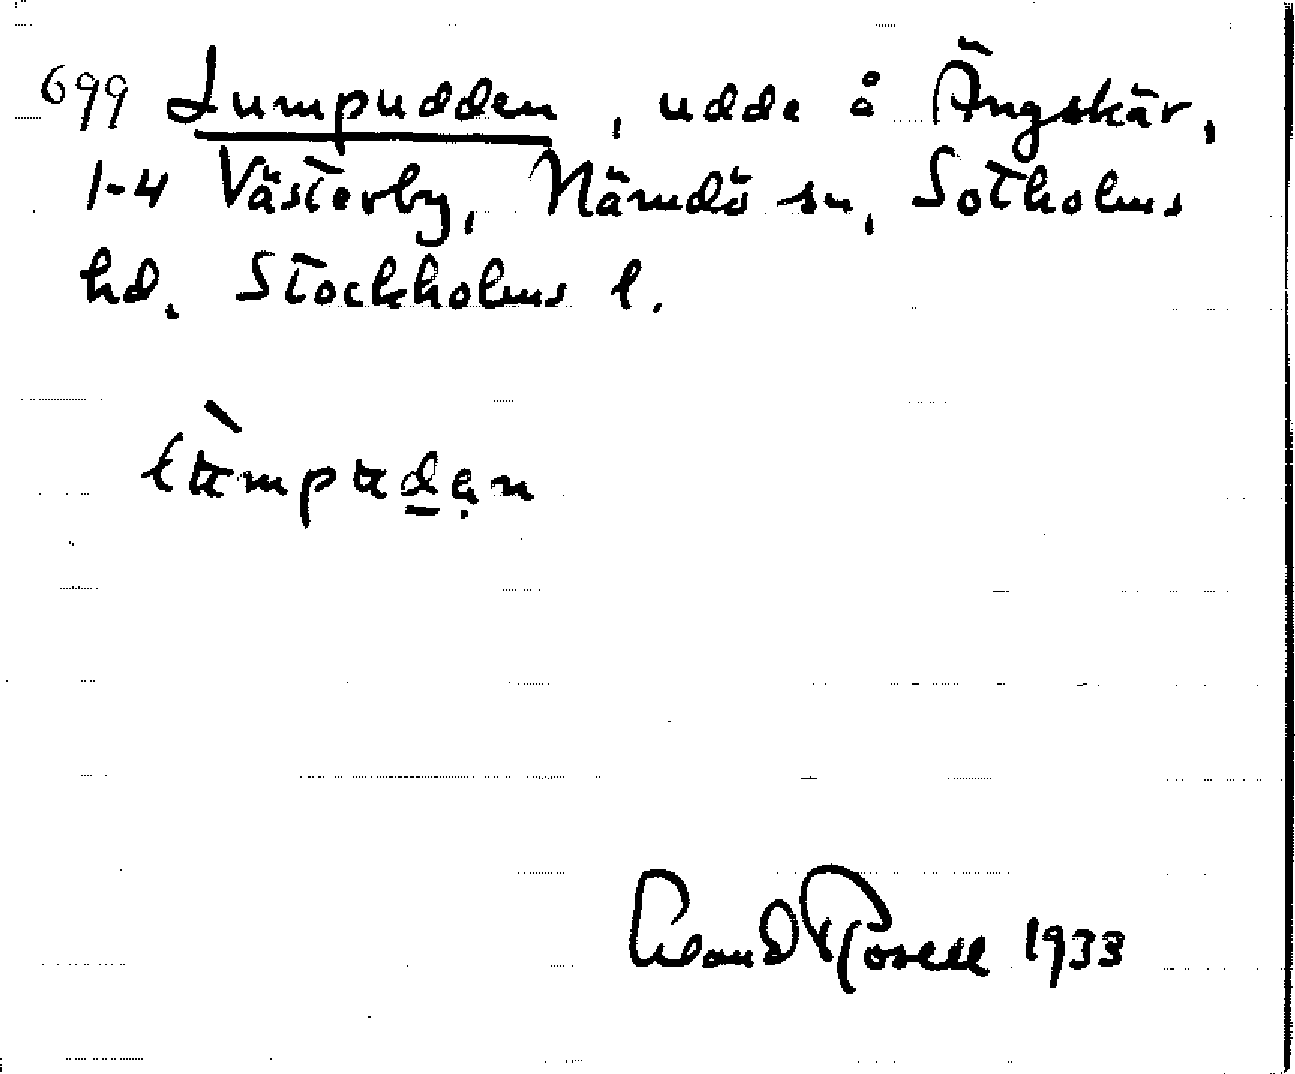 699 Lumpudden, udde å Ängskär,
1-4 Västerby, Nämdö sn, Sotholms
hd. Stockholms l.
lʉ̀mpʉd̲ạn
1933